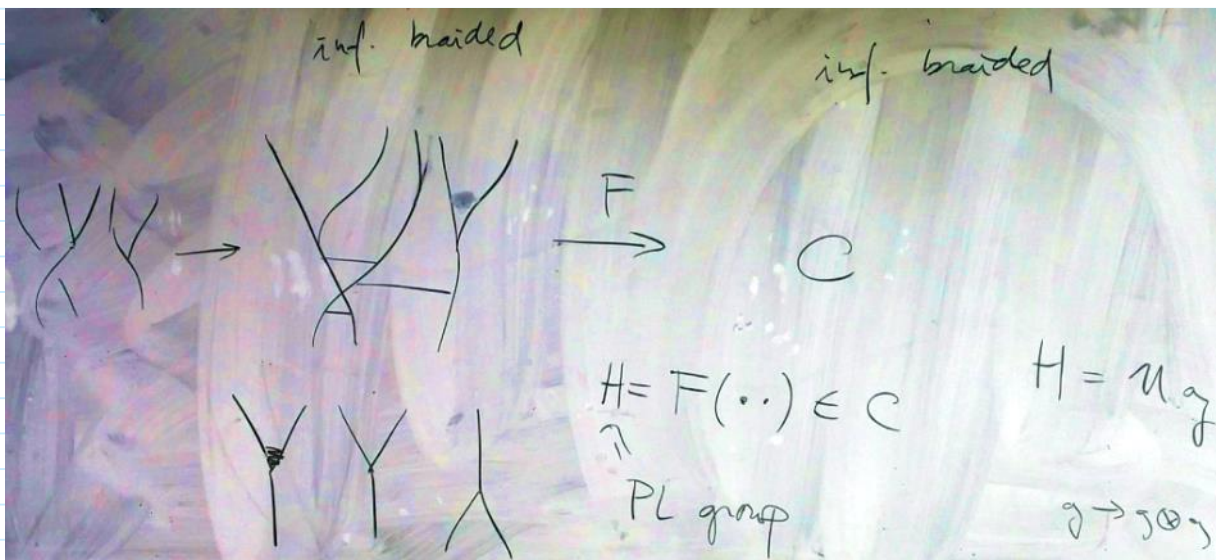 inf. braided
inf. braided
F
C
H = F(··) ∈ C
H = U g
PL group
g → g ⊗ g